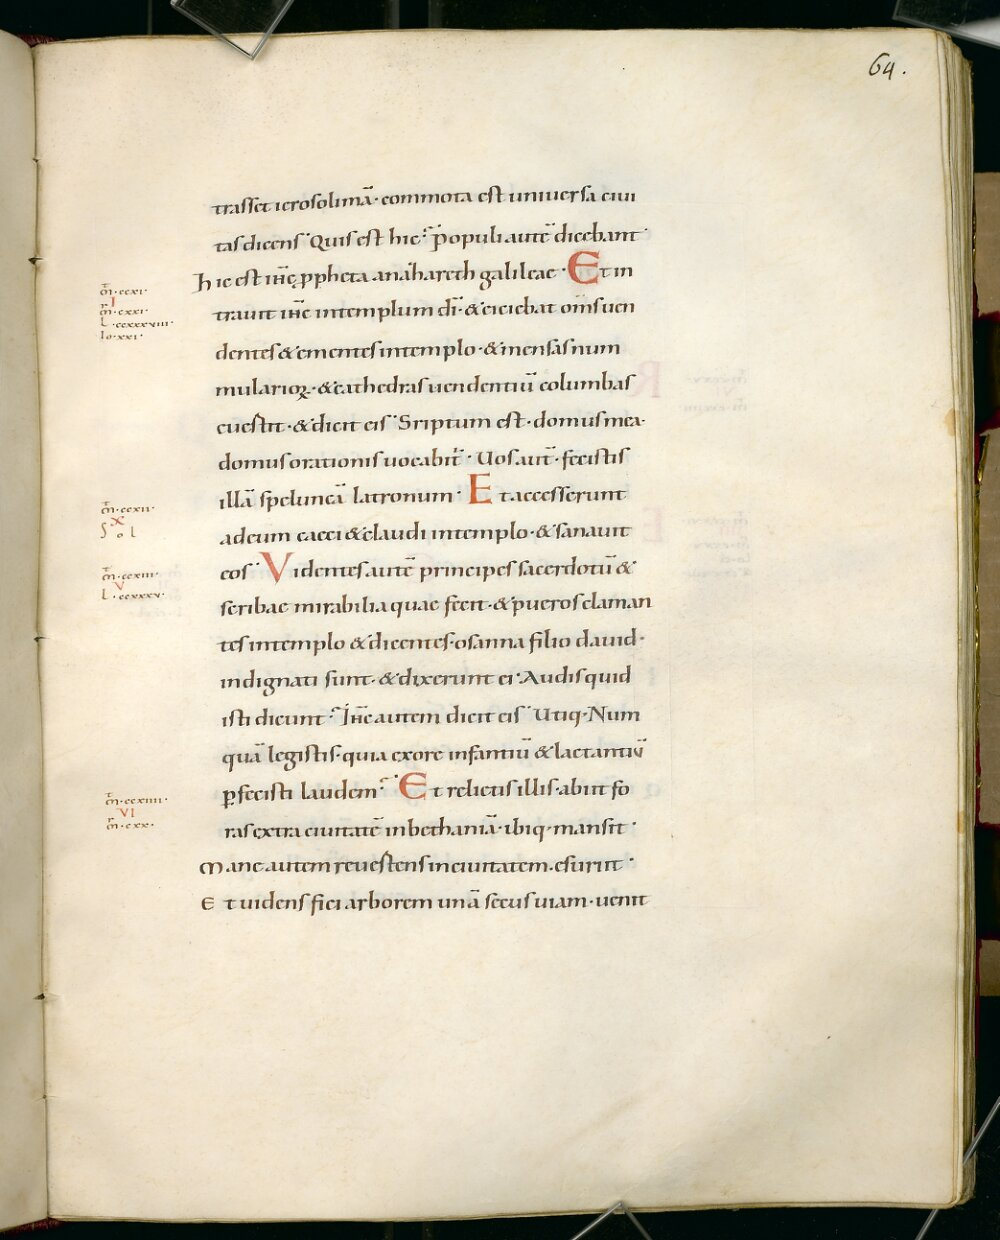 64.
trasset ierosolimā· commota est universa ciui
tas dicens· Quis est hic· p̄opuli autē dicebant·
hic est ihc̄ ppheta anahareth galileae· Et in
trauit ihc̄ in templum dī· & eiciebat om̄s uen
dentes & ementes in templo· & mensas num
mularioꝝ· & cathedras uendentiū columbas
euestit· & dicit eis· Sriptum est· domus mea·
domus orationis uocabit̄· Uos aut̄· fecistis
illā speluncā latronum· Et accesserunt
ad eum caeci & claudi in templo· & sanauit
eos· Videntes autē principes sacerdotū &
scribae mirabilia quae fecit· & pueros claman
tes in templo & dicentes· osanna filio dauid·
indignati sunt· & dixerunt ei· Audis quid
isti dicunt· Ihc̄ autem dicit eis· Utiq· Num
quā legistis· quia ex ore infantiū & lactantiū
ꝑfecisti laudem· Et relictis illis· abiit fo
ras extra ciuitatē in bethaniā· ibiq· mansit·
Mane autem reuestens in ciuitatem· esuriit·
Et uidens fici arborem unā secus uiam· uenit
m̄·ccxi·
I
m̄·cxxi·
L·ccxxxviii·
Io·xxi·
m̄·ccxii·
X
S o L
m̄·ccxiii·
V
L·ccxxxv·
m̄·ccxiiii·
VI
m̄·cxx·